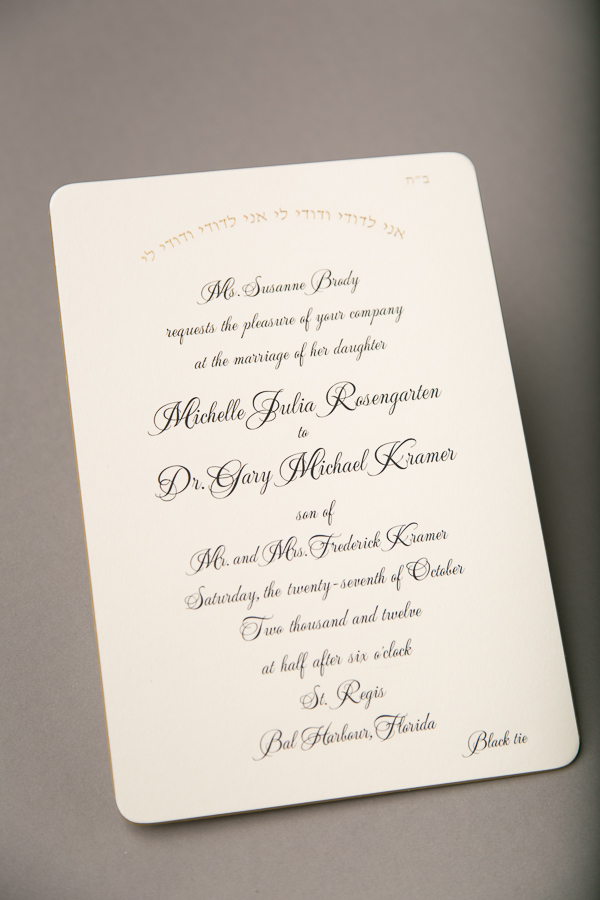 ב״ה
אני לדודי ודודי לי אני לדודי ודודי לי
Ms. Susanne Brody
requests the pleasure of your company
at the marriage of her daughter
Michelle Julia Rosengarten
to
Dr. Gary Michael Kramer
son of
Mr. and Mrs. Frederick Kramer
Saturday, the twenty-seventh of October
Two thousand and twelve
at half after six o'clock
St. Regis
Bal Harbour, Florida
Black tie